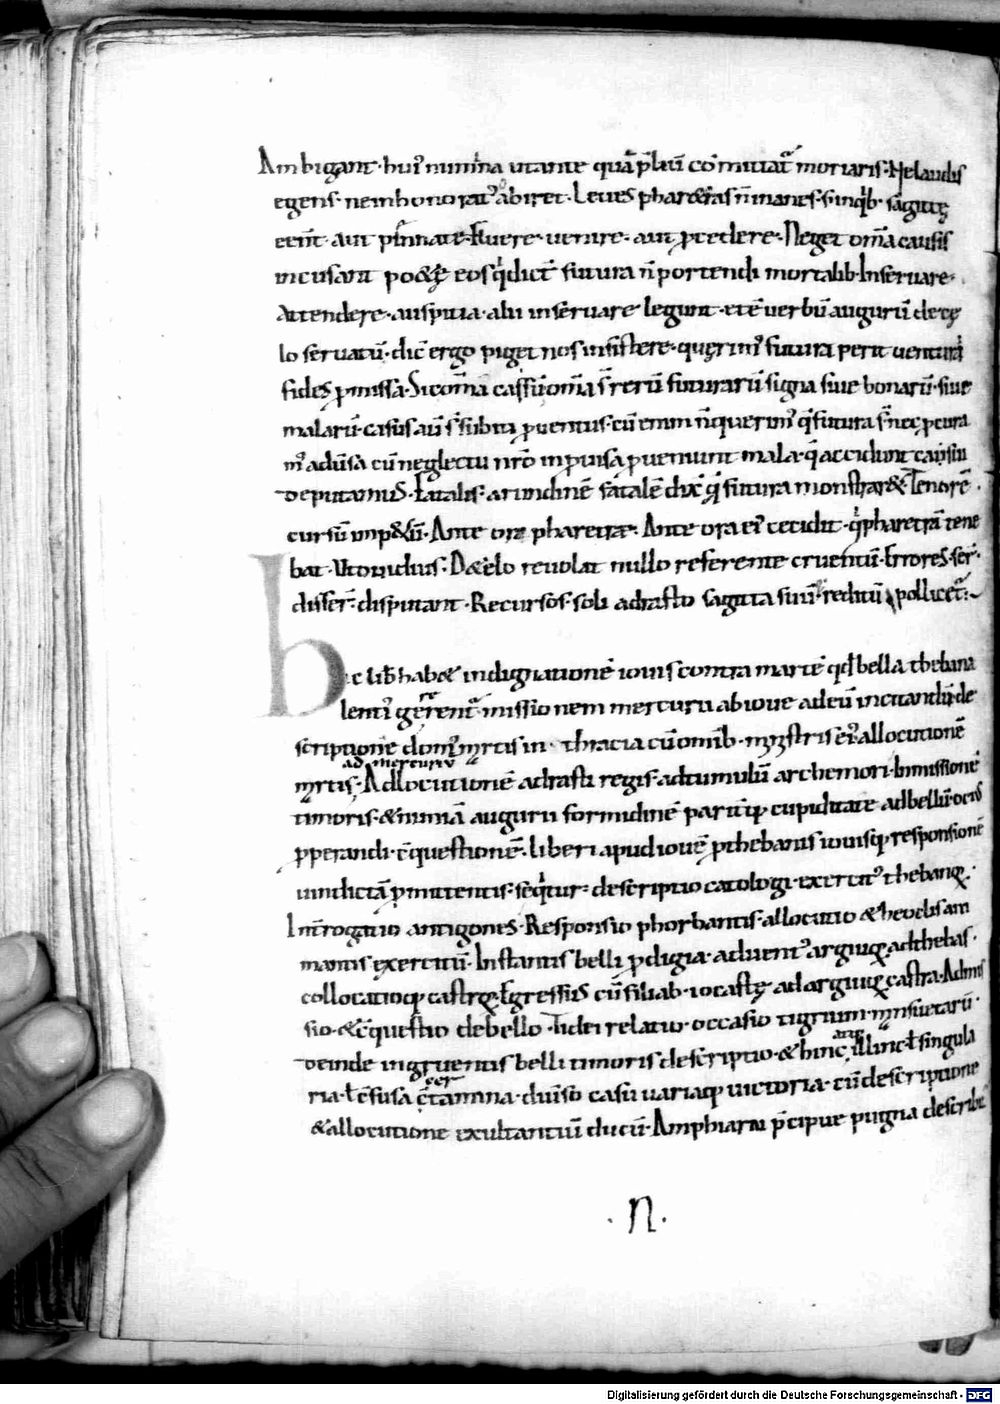 Ambigant · hui᷒ numina utante quā p̄liū cōmittat᷒ moriaris · Ne laudis
egens · nemhonorat᷒ abiret · Leues pharetras īnanes · sinqb· sagittę
eent̄ · aut pinnate · Fluere · uenire · aut p̄cedere · Neget om̄a causis
incusant po&ę eos q̇ dict̄ futura n̄ portendi mortalib· Inseruare ·
Attendere · auspitia · alii inseruare legunt · et ē uerbū auguriū de cę
lo seruatū · dic̄ ergo piget nos insistere · querim᷒ futura perit uentura
fides p̄missa · Sic om̄a casuū om̄a s̄ rerū futurarū signa siue bonarū · siue
malarū · casus aū s̄ subiti p̄uentus · cū enim n̄ querim᷒ q̄ futura s̄ nec p̄cura
m᷒ aduersa cū neglectu nr̄o inp̄uisa p̄ueniunt mala · q̄ accidunt casui
deputamus · Fatalis · arundinē fatalē dix̄ q̇ futura monstrar& Tenorē ·
cursū imp&ū · Ante ora pharetrae · Ante ora ei᷒ cecidit · q̇ pharetrā tene
bat · Ut ouidius · D&elo reuolat nullo referente cruentū · Errores · ser ·
disser̄ · disputant · Recursos · soli adrasto sagitta suū · reditū pollicet᷒ ·
Hic lib̄ hab& indignationē iouis contra martē qd̄ bella thebana
lenti᷒ gererent᷒ · missionem mercurii ab ioue ad eū incitandū · de
scriptionē dom᷒ martis in · thracia cū omib· ministris ei᷒ · allocutionē
ad mercuriū
martis · Adlocutionē adrasti regis · ad tumulū archemori · Inmissionē
timoris · & nimiā augurii formidinē paritq̄ cupiditate ad bellū · oci᷒
p̄perandi · c̄questionē · liberi apud iouē p̄ thebanis iouisq̄ responsionē
uindictā p̄mittentis · seq̇tur · descriptio catologi · exercit᷒ thebanoꝝ ·
Int̄rogatio antigones · Responsio phorbantis · allocutio &heoclis am
mantis exercitū · Instantis belli p̄digia · aduent᷒ argiuoꝝ ad thebas ·
collocatioq̄ castroꝝ · Egressus cū filiab· iocastę ad argiuoꝝ castra · Admis
sio · & c̄questio de bello · Tidei relatio · occasio tigrium · mansuetarū ·
deinde ingruentis belli timoris descriptio · & hinc atq; illinc ł singula
ria · ł c̄fusa certamina · diuiso casu uariaq̄ uictoria · cū descriptione
& allocutione exultantiū ducū · Amphiarai p̄cipue pugna describit᷒
· N ·
Digitalisierung gefördert durch die Deutsche Forschungsgemeinschaft - DFG